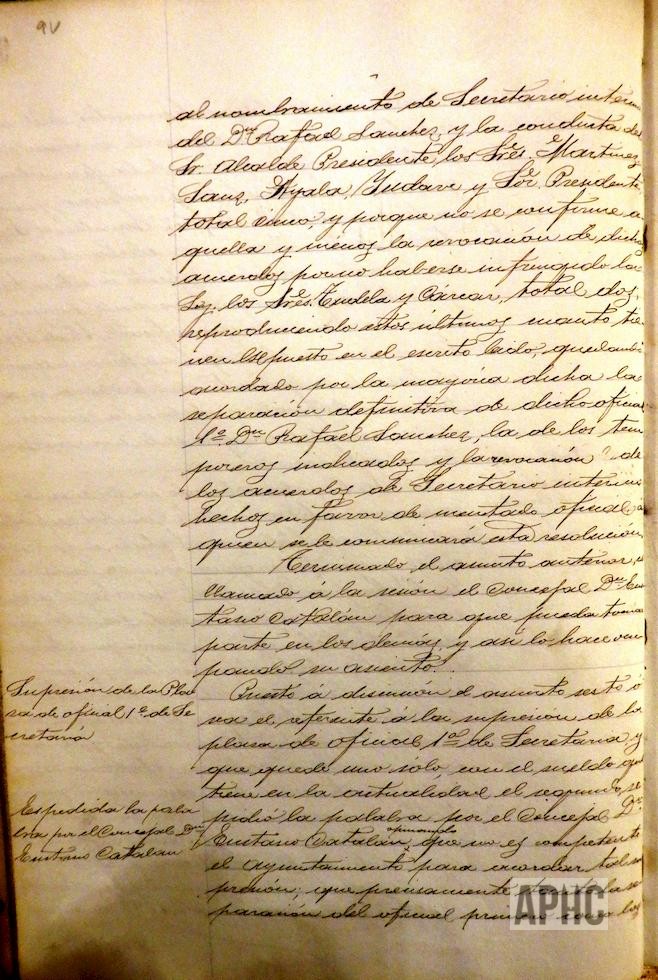 9v
al nombramiento de Secretario interino
del Dn Rafael Sanchez, y la conducta del
Sr. Alcalde Presidente los Sres. Martinez
Sanz, Ayala, Yudave y Sor. Presidente,
total cinco, y porque no se conforme a
quella y menos la revocación de dichos
acuerdos por no haberse infringido la
Ley, los Sres. Tudela y Cárcar, total dos,
reproduciendo estos últimos cuanto tie
nen espuesto en el escrito leido, quedando
acordado por la mayoria dicha la
separación definitiva de dicho oficial
1º Dn Rafael Sanchez, la de los tem
poreros indicados y la revocación de
los acuerdos de Secretario interino
hechos en favor de mentado oficial, a
quien se le comunicará esta resolución.
Terminado el asunto anterior, es
llamado á la sesión el Concejal Dn Eus
tasio Catalán para que pueda tomar
parte en los demás, y asi lo hace ocu
pando su asiento.
Supresión de la Pla
za de oficial 1º de Se
cretaria
Puesto á discusión el asunto sesto ó
sea el referente á la supresión de la
plaza de oficial 1º de Secretaria y
que quede uno solo, con el sueldo que
tiene en la actualidad el segundo, se
Es pedida la pala
bra por el Concejal Dn
Eustasio Catalán
pidió la palabra por el Concejal Dn
Eustasio Catalán, opinando que no es competente
el Ayuntamiento para acordar tal su
presión; que precisamente la se
paración del oficial primero
APHC